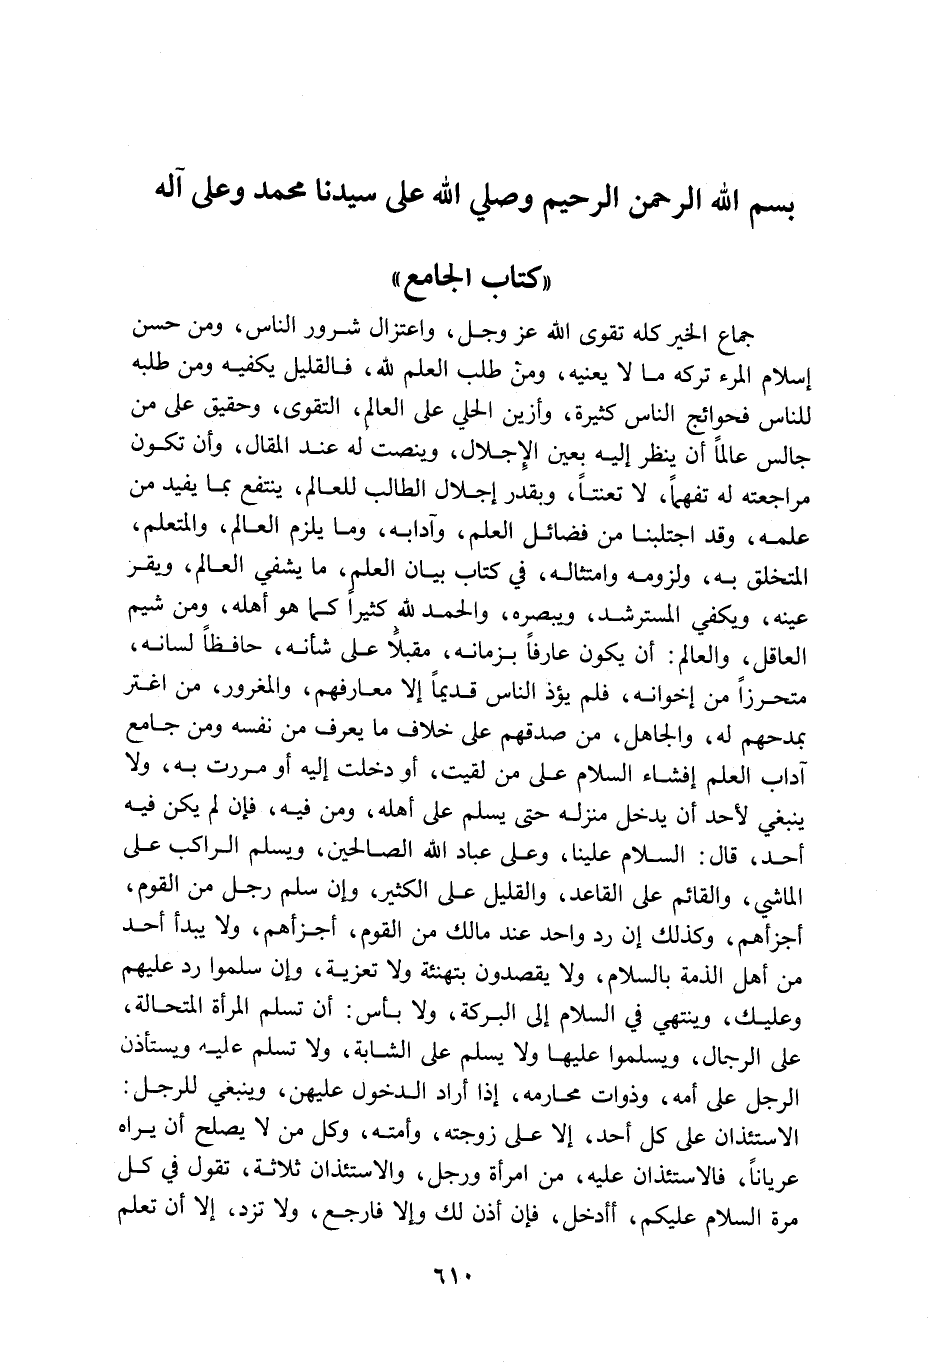 بسم الله الرحمن الرحيم وصلي الله على سيدنا محمد وعلى آله
«كتاب الجامع»
جماع الخير كله تقوى الله عز وجل، واعتزال شرور الناس، ومن حسن
إسلام المرء تركه ما لا يعنيه، ومن طلب العلم لله، فالقليل يكفيه ومن طلبه
للناس فحوائج الناس كثيرة، وأزين الحلي على العالم، التقوى، وحقيق على من
جالس عالماً أن ينظر إليه بعين الإجلال، وينصت له عند المقال، وأن تكون
مراجعته له تفهماً، لا تعنتاً، وبقدر إجلال الطالب للعالم، ينتفع بما يفيد من
علمه، وقد اجتلبنا من فضائل العلم، وآدابه، وما يلزم العالم، والمتعلم،
المتخلق به، ولزومه وامتثاله، في كتاب بيان العلم، ما يشفي العالم، ويقر
عينه، ويكفي المسترشد، ويبصره، والحمد لله كثيراً كما هو أهله، ومن شيم
العاقل، والعالم: أن يكون عارفاً بزمانه، مقبلاً على شأنه، حافظاً لسانه،
متحرزاً من إخوانه، فلم يؤذ الناس قديماً إلا معارفهم، والمغرور، من اغتر
بمدحهم له، والجاهل، من صدقهم على خلاف ما يعرف من نفسه ومن جامع
آداب العلم إفشاء السلام على من لقيت، أو دخلت إليه أو مررت به، ولا
ينبغي لأحد أن يدخل منزله حتى يسلم على أهله، ومن فيه، فإن لم يكن فيه
أحد، قال: السلام علينا، وعلى عباد الله الصالحين، ويسلم الراكب على
الماشي، والقائم على القاعد، والقليل على الكثير، وإن سلم رجل من القوم،
أجزأهم، وكذلك إن رد واحد عند مالك من القوم، أجزأهم، ولا يبدأ أحد
من أهل الذمة بالسلام، ولا يقصدون بتهنئة ولا تعزية، وإن سلموا رد عليهم
وعليك، وينتهي في السلام إلى البركة، ولا بأس: أن تسلم المرأة المتحالة،
على الرجال، ويسلموا عليها ولا يسلم على الشابة، ولا تسلم عليه ويستأذن
الرجل على أمه، وذوات محارمه، إذا أراد الدخول عليهن، وينبغي للرجل:
الاستئذان على كل أحد، إلا على زوجته، وأمته، وكل من لا يصلح أن يراه
عرياناً، فالاستئذان عليه، من امرأة ورجل، والاستئذان ثلاثة، تقول في كل
مرة السلام عليكم، أأدخل، فإن أذن لك وإلا فارجع، ولا تزد، إلا أن تعلم
٦١٠